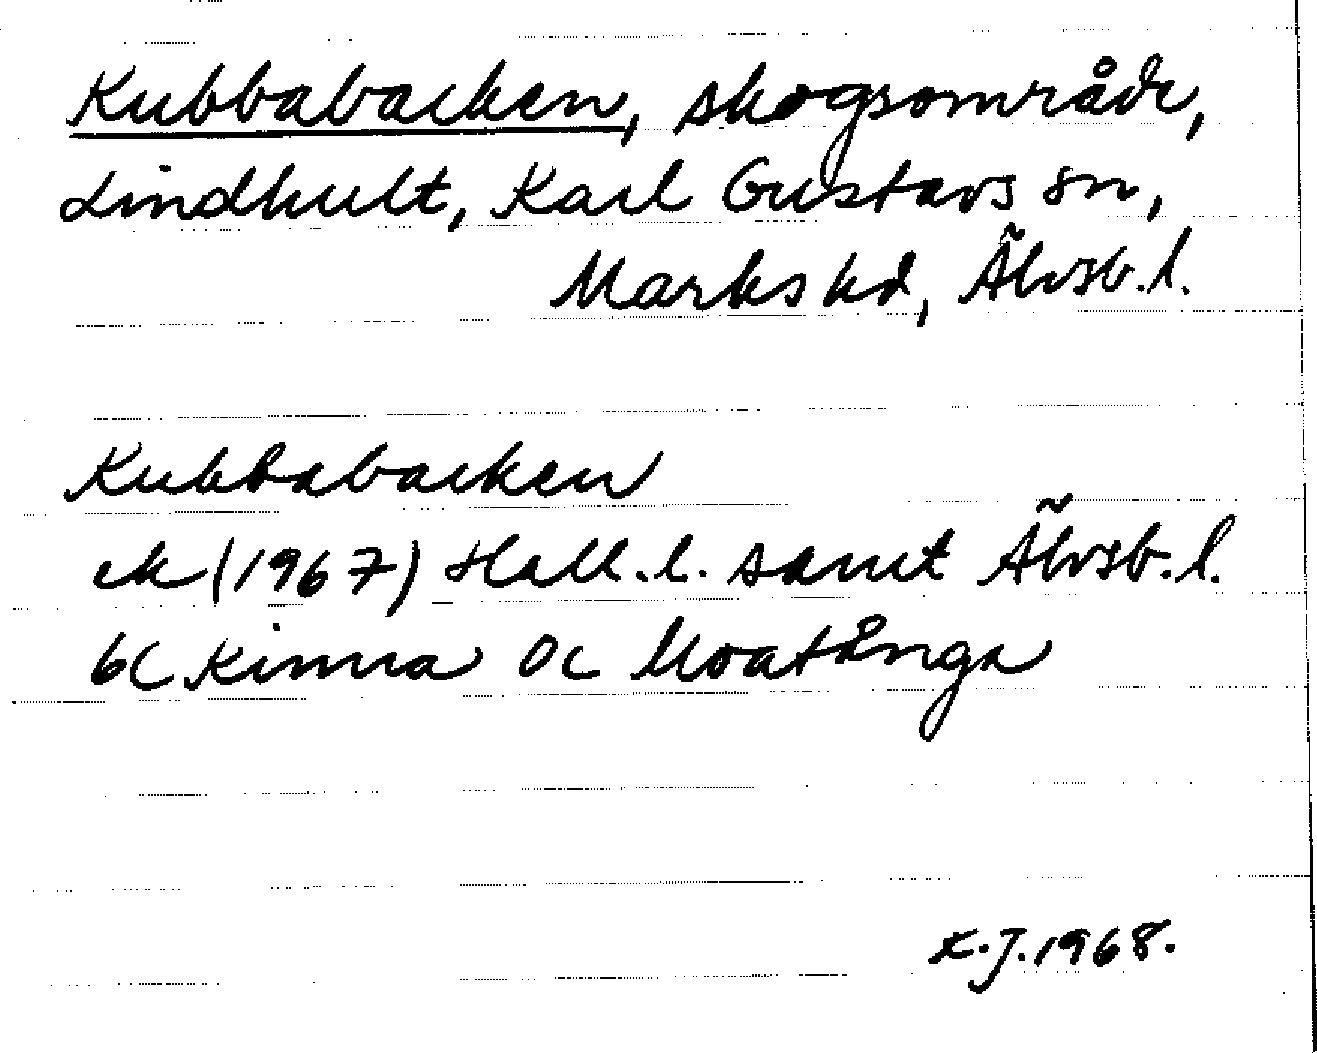 Kubbabacken, skogsområde,
Lindhult, Karl Gustavs sn,
Marks hd, Älvsb. l.
Kubbabacken
ek (1967) Hall. l. samt Älvsb. l.
6C Kinna 0c Moatånga
K.J. 1968.